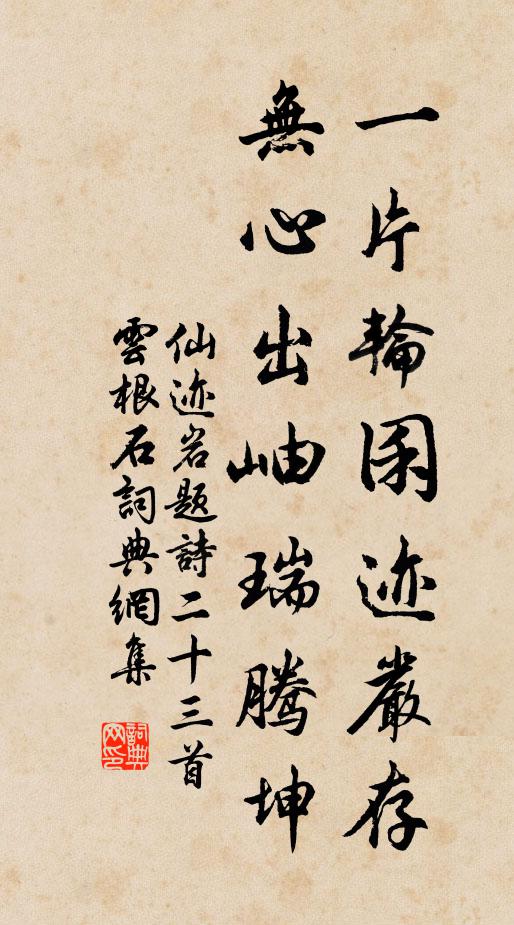 一片輪囷迹嚴存
無心出岫瑞騰坤
仙迹岩题詩二十三首
雲根石詞典網集
詞典网印